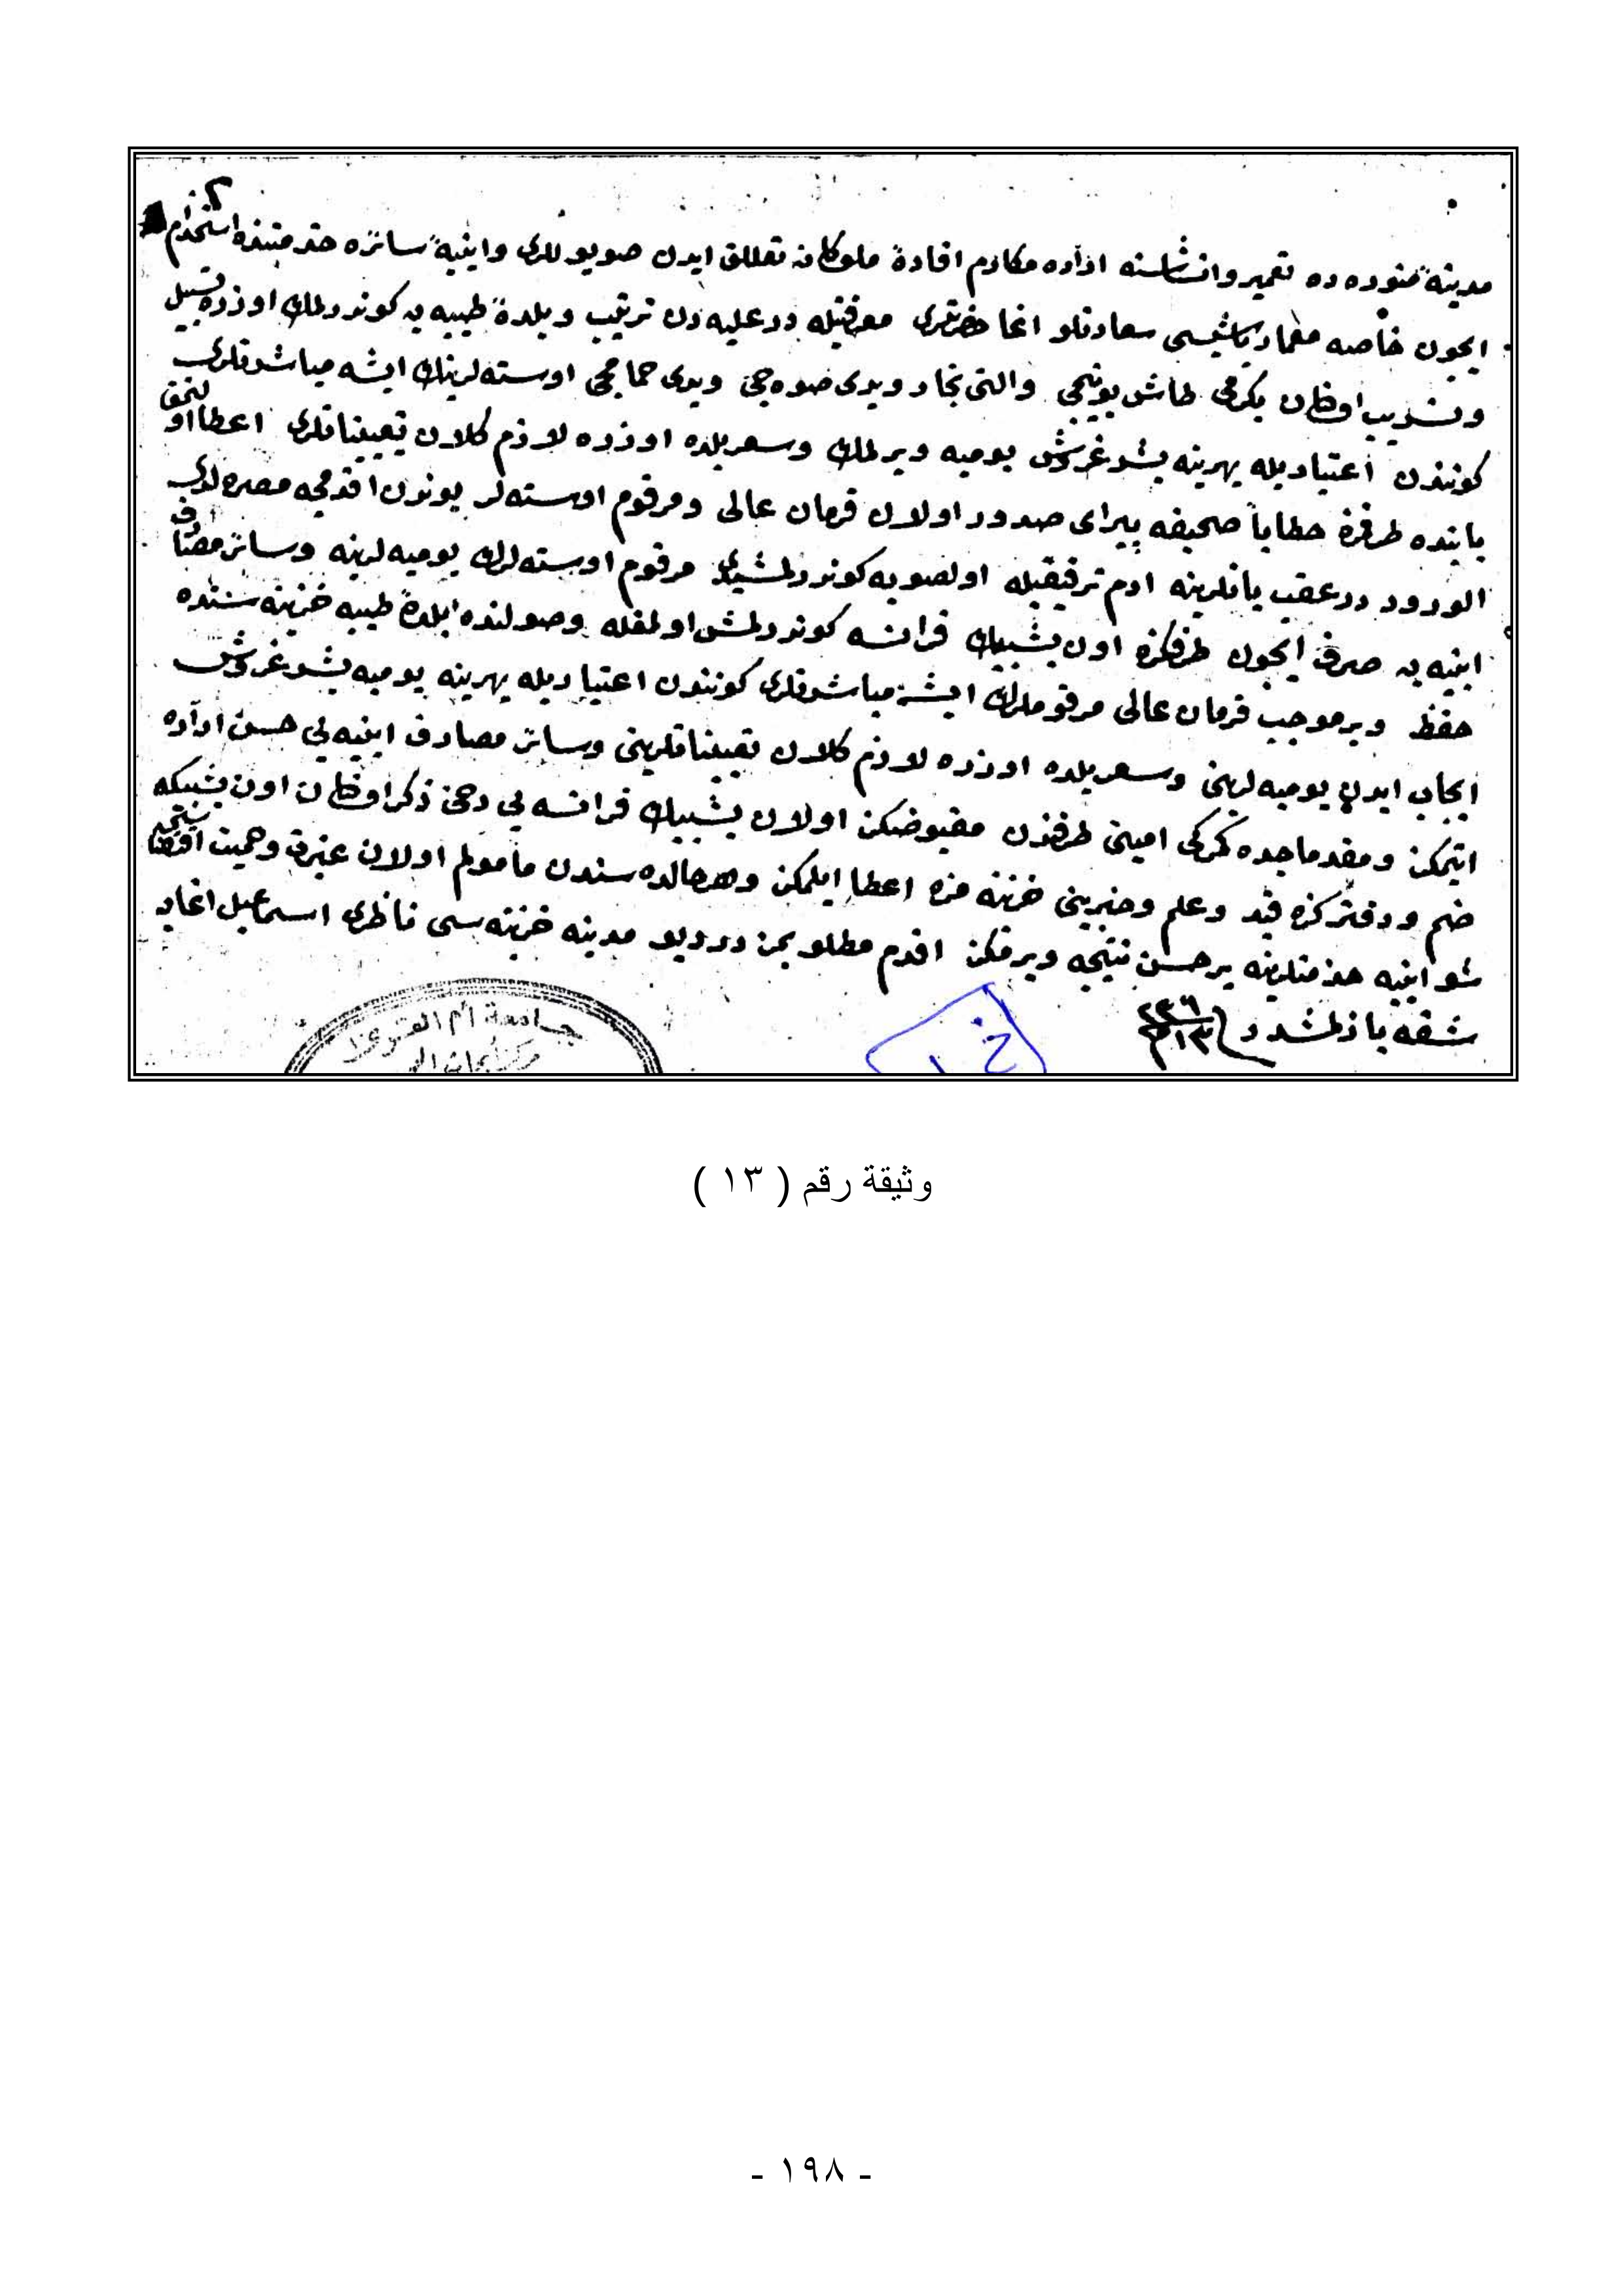 مدينهٔ منوره ده تعمير وانشاسنه اراده مكارم افادهٔ ملوكانه تعلق ايدن صويوللرى وابنيهٔ سائره خدمتنده استخدام
ايچون خاصه معمار باشيسى سعادتلو اغا حضرتلرى معرفتيله درعليه دن ترتيب وبلدهٔ طيبه يه كوندرلمك اوزره تسبيل
وتسريب اولنان يكرمى طاش يونيجى والتى نجار ويدى صوه جى ويدى حمامجى اوسته لرينك ايشه مباشرتلرى
كونندن اعتباريله بهرينه بشر غروش يوميه ويرلمك وسعر بلده اوزره لازم كلان تعييناتلرى اعطا اولنمق
بابنده طرفمزه خطاباً صحيفه پيراى صدور اولان فرمان عالى ومرقوم اوسته لر بوندن اقدمجه مصره لدى
الورود درعقب يانلرينه ادم ترفيقيله اولصوبه كوندرلمشيدى مرقوم اوسته لرك يوميه لرينه وسائر مصارف
ابنيه يه صرف ايچون طرفكزه اون بشبيك فرانسه كوندرلمش اولمغله وصولنده بلدهٔ طيبه خزينه سنده
حفظ وبرموجب فرمان عالى مرقوملرك ايشه مباشرتلرى كونندن اعتباريله بهرينه يوميه بشر غروش
ايجاب ايدن يوميه لرينى وسعر بلده اوزره لازم كلان تعييناتلرينى وسائر مصارف ابنيه يى حسن اداره
ايتمكز ومقدما جده كمركى امينى طرفندن مقبوضكز اولان بشبيك فرانسه يى دخى ذكر اولنان اون بشبيكه
ضم ودفتركزه قيد وعلم وخبرينى خزينه مزه اعطا ايلمكز وهر حالده سزدن مأمولم اولان غيرت وحميت اقتضاسنجه
شو ابنيه خدمتلرينه بر حسن نتيجه ويرمكز اقدم مطلوبمز در ديو مدينه خزينه سى ناظرى اسماعيل اغايه
شقه يازلمشدر
جامعة أم القرى
وثيقة رقم ( ١٣ )
- ١٩٨ -